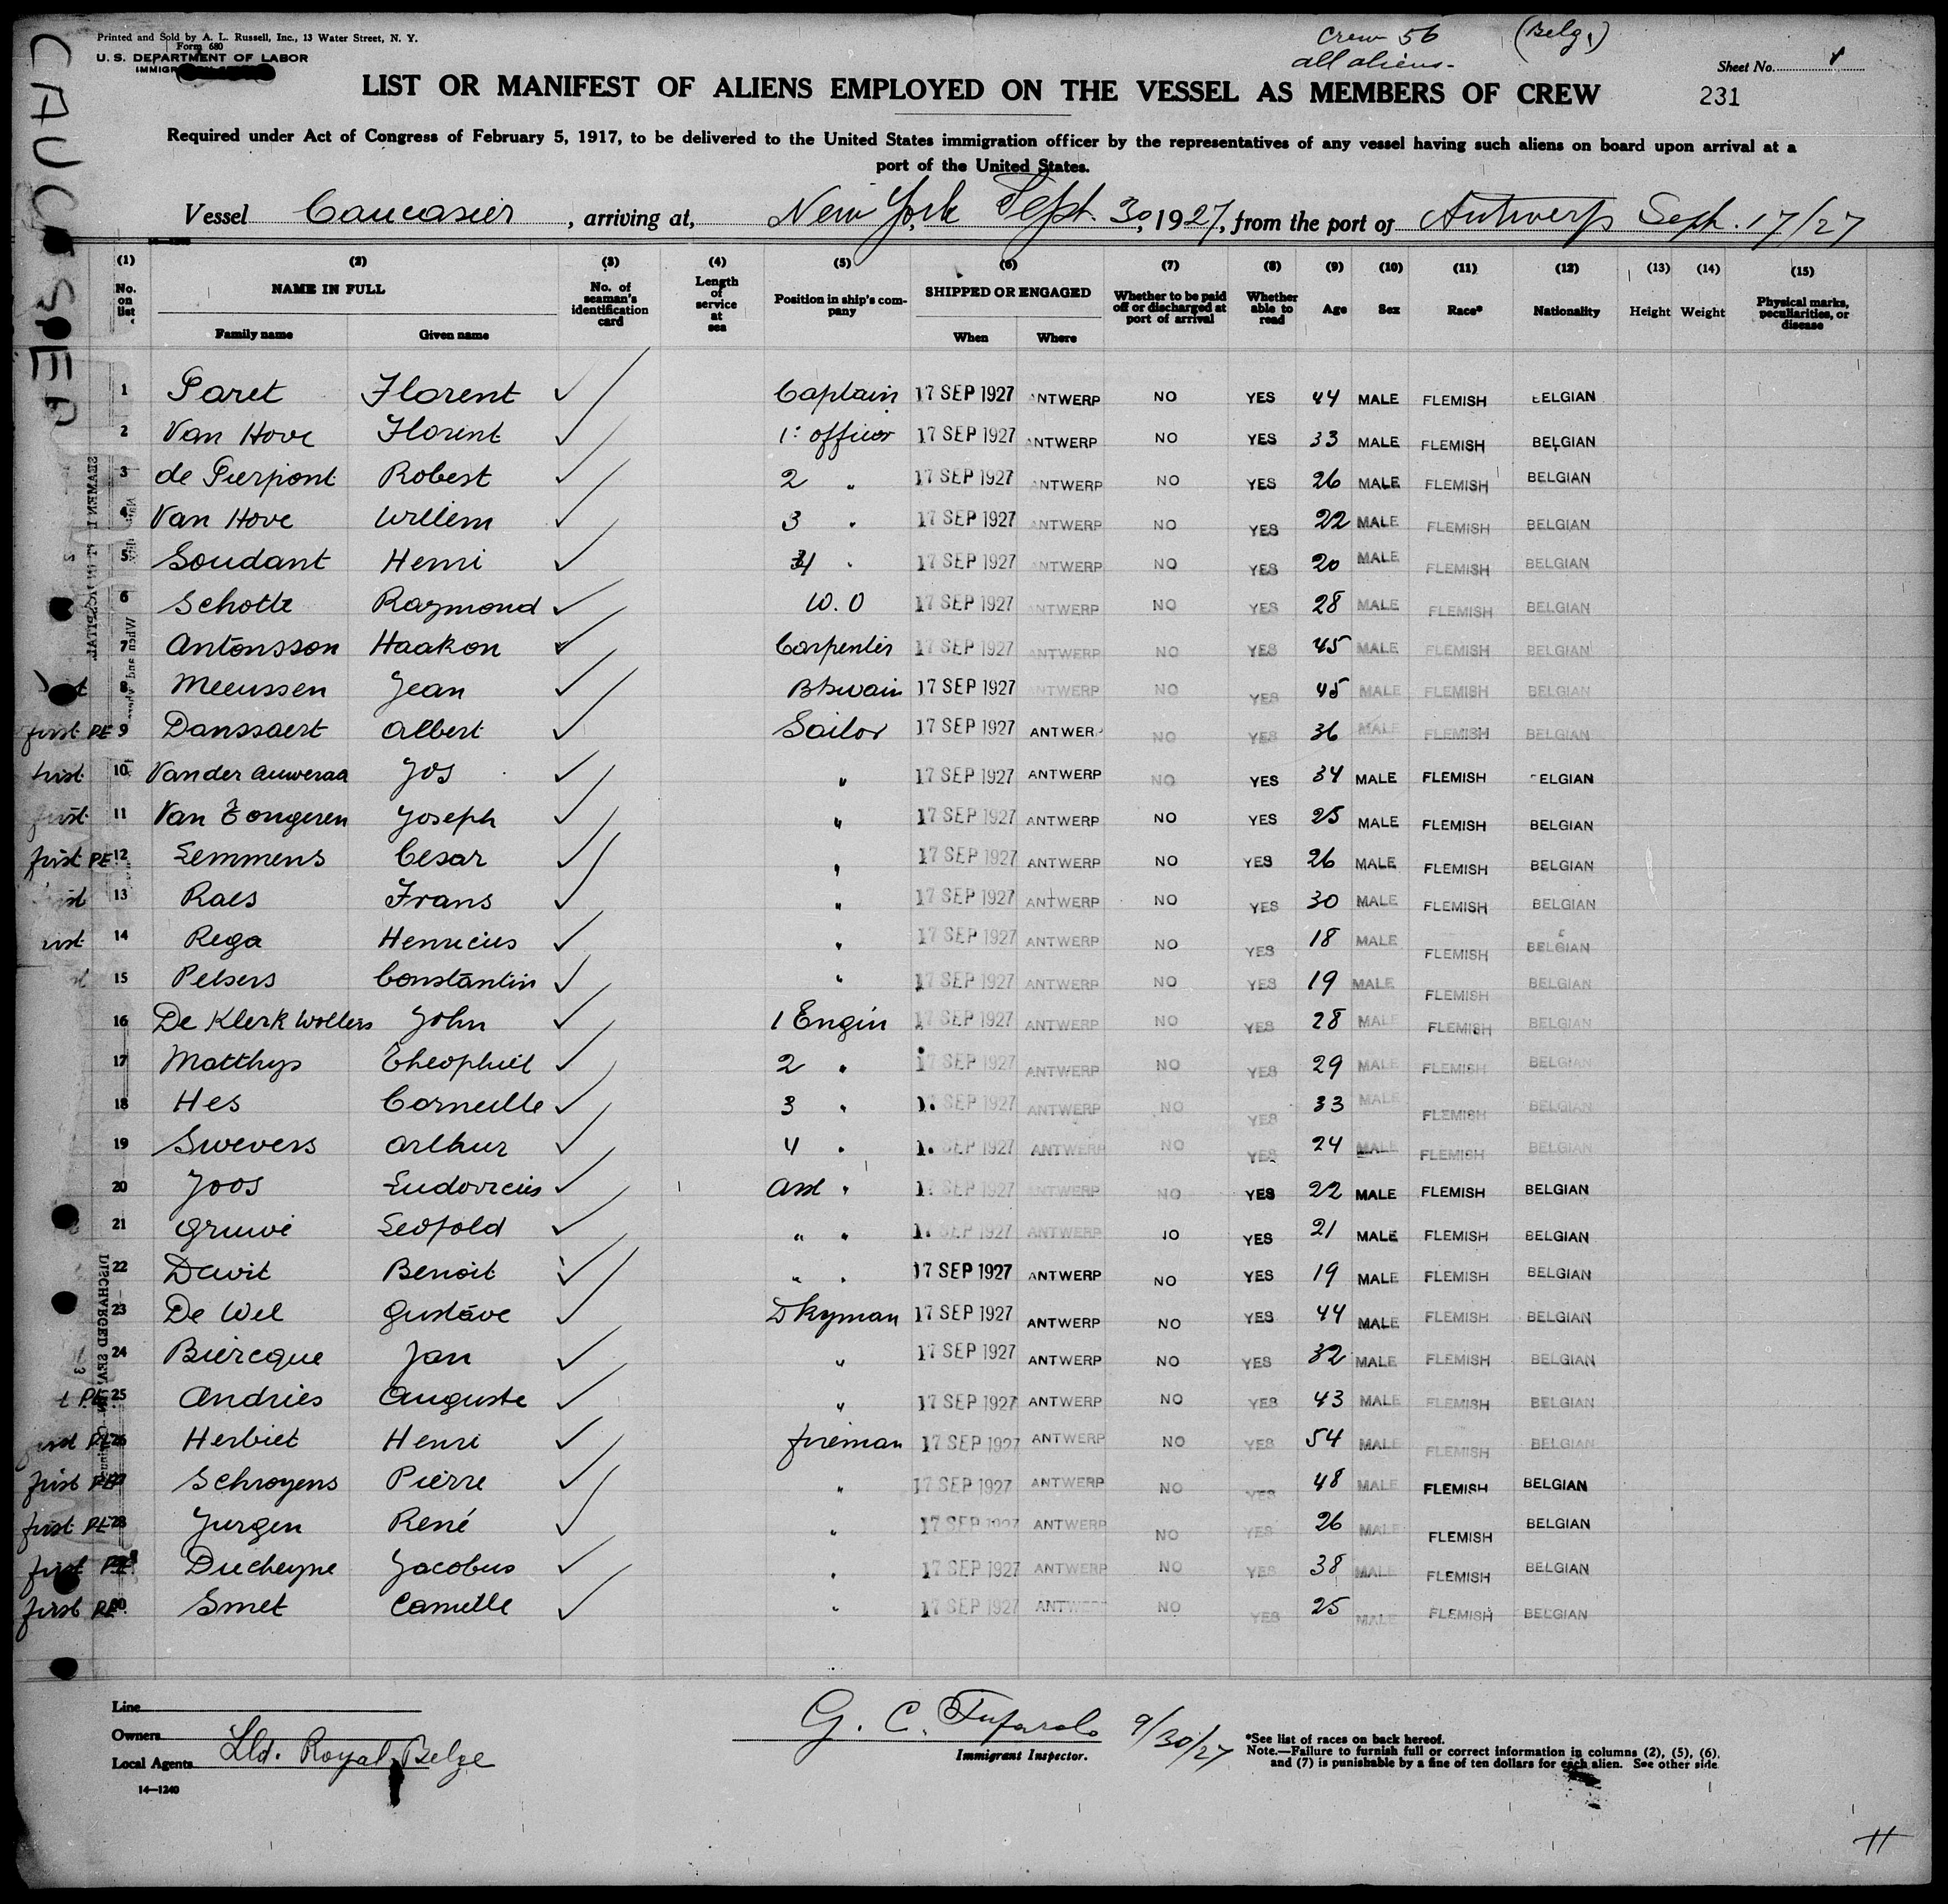 Printed and Sold by A. L. Russell, Inc., 13 Water Street, N. Y.
Form 680
U. S. DEPARTMENT OF LABOR
Crew 56 (Belg.)
all aliens.
Sheet No. 1
231
CAUCASIER
LIST OR MANIFEST OF ALIENS EMPLOYED ON THE VESSEL AS MEMBERS OF CREW
Required under Act of Congress of February 5, 1917, to be delivered to the United States immigration officer by the representatives of any vessel having such aliens on board upon arrival at a
port of the United States.
Vessel Caucasier, arriving at, New York, Sept. 30, 1927, from the port of Antwerp Sept. 17/27
(1) (2) (3) (4) (5) (6) (7) (8) (9) (10) (11) (12) (13) (14) (15)
No. on list NAME IN FULL Family name Given name No. of seaman's identification card Length of service at sea Position in ship's company SHIPPED OR ENGAGED When Where Whether to be paid off or discharged at port of arrival Whether able to read Age Sex Race* Nationality Height Weight Physical marks, peculiarities, or disease
1 Paret Florent Captain 17 SEP 1927 ANTWERP NO YES 44 MALE FLEMISH BELGIAN
2 Van Hove Florent 1: officer 17 SEP 1927 ANTWERP NO YES 33 MALE FLEMISH BELGIAN
3 de Pierpont Robert 2 " 17 SEP 1927 ANTWERP NO YES 26 MALE FLEMISH BELGIAN
4 Van Hove Willem 3 " 17 SEP 1927 ANTWERP NO YES 22 MALE FLEMISH BELGIAN
5 Soudant Henri 4 " 17 SEP 1927 ANTWERP NO YES 20 MALE FLEMISH BELGIAN
6 Schotte Raymond W.O 17 SEP 1927 ANTWERP NO YES 28 MALE FLEMISH BELGIAN
7 Antonsson Haakon Carpenter 17 SEP 1927 ANTWERP NO YES 45 MALE FLEMISH BELGIAN
8 Meeussen Jean Btswain 17 SEP 1927 ANTWERP NO YES 45 MALE FLEMISH BELGIAN
first PE 9 Danssaert Albert Sailor 17 SEP 1927 ANTWER NO YES 36 MALE FLEMISH BELGIAN
first 10 Vander Auweraa Jos " 17 SEP 1927 ANTWERP NO YES 34 MALE FLEMISH BELGIAN
first 11 Van Tongeren Joseph " 17 SEP 1927 ANTWERP NO YES 25 MALE FLEMISH BELGIAN
first PE 12 Lemmens Cesar " 17 SEP 1927 ANTWERP NO YES 26 MALE FLEMISH BELGIAN
13 Raes Frans " 17 SEP 1927 ANTWERP NO YES 30 MALE FLEMISH BELGIAN
14 Rega Henricus " 17 SEP 1927 ANTWERP NO YES 18 MALE FLEMISH BELGIAN
15 Pelsers Constantin " 17 SEP 1927 ANTWERP NO YES 19 MALE FLEMISH BELGIAN
16 De Klerk Wolters John 1 Engin 17 SEP 1927 ANTWERP NO YES 28 MALE FLEMISH BELGIAN
17 Matthys Theophiel 2 " 17 SEP 1927 ANTWERP NO YES 29 MALE FLEMISH BELGIAN
18 Hes Corneille 3 " 17 SEP 1927 ANTWERP NO YES 33 MALE FLEMISH BELGIAN
19 Swevers Arthur 4 " 17 SEP 1927 ANTWERP NO YES 24 MALE FLEMISH BELGIAN
20 Joos Ludovicus Asst " 17 SEP 1927 ANTWERP NO YES 22 MALE FLEMISH BELGIAN
21 Gruwé Leopold " " 17 SEP 1927 ANTWERP NO YES 21 MALE FLEMISH BELGIAN
22 Dawit Benoit " " 17 SEP 1927 ANTWERP NO YES 19 MALE FLEMISH BELGIAN
23 De Wel Gustave Dkyman 17 SEP 1927 ANTWERP NO YES 44 MALE FLEMISH BELGIAN
24 Biercque Jan " 17 SEP 1927 ANTWERP NO YES 32 MALE FLEMISH BELGIAN
25 Andries Auguste " 17 SEP 1927 ANTWERP NO YES 43 MALE FLEMISH BELGIAN
26 Herbiet Henri fireman 17 SEP 1927 ANTWERP NO YES 54 MALE FLEMISH BELGIAN
first PE 27 Schroyens Pierre " 17 SEP 1927 ANTWERP NO YES 48 MALE FLEMISH BELGIAN
first PE 28 Jurgen René " 17 SEP 1927 ANTWERP NO YES 26 MALE FLEMISH BELGIAN
first PE 29 Ducheyne Jacobus " 17 SEP 1927 ANTWERP NO YES 38 MALE FLEMISH BELGIAN
first PE 30 Smet Camille " 17 SEP 1927 ANTWERP NO YES 25 MALE FLEMISH BELGIAN
Line
Owners
Local Agents Lld. Royal Belge
14—1240
G. C. 9/30/27
Immigrant Inspector.
*See list of races on back hereof.
Note.—Failure to furnish full or correct information in columns (2), (5), (6),
and (7) is punishable by a fine of ten dollars for each alien. See other side